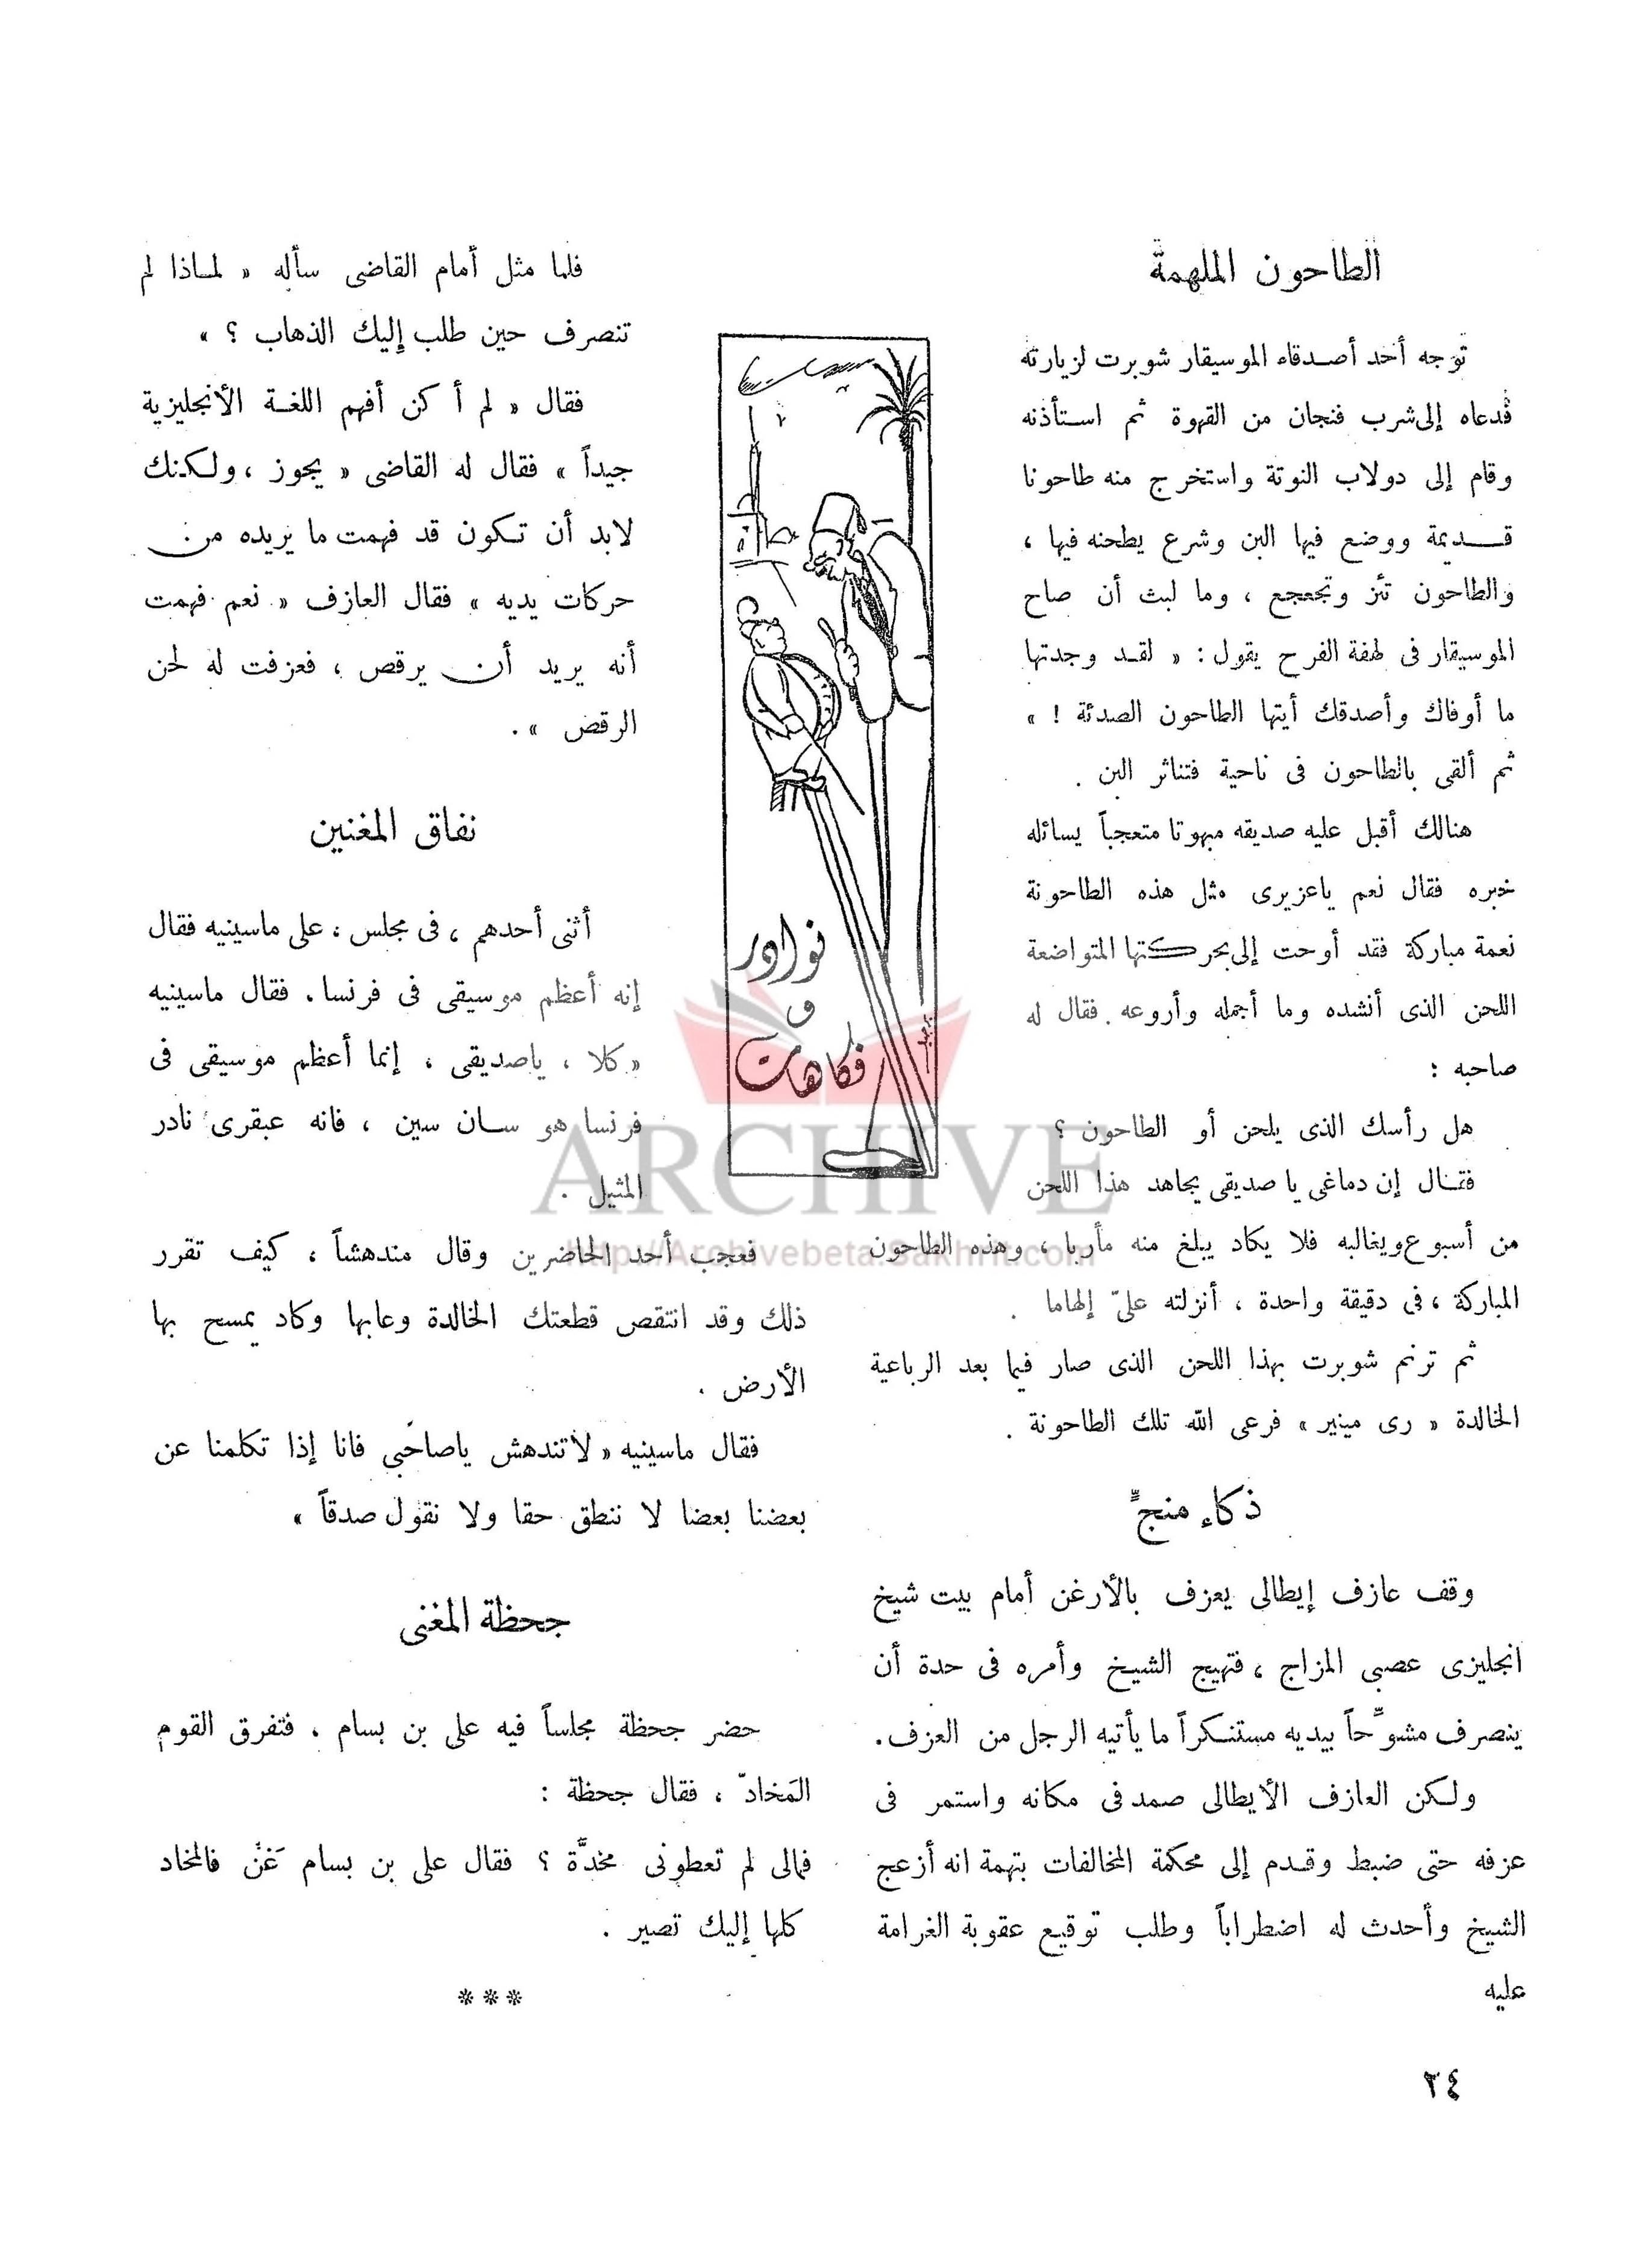 الطاحون الملهمة
توجه أحد أصدقاء الموسيقار شوبرت لزيارته
فدعاه إلى شرب فنجان من القهوة ثم استأذنه
وقام إلى دولاب النوتة واستخرج منه طاحونا
قديمة ووضع فيها البن وشرع يطحنه فيها ،
والطاحون تئز وتجعجع ، وما لبث أن صاح
الموسيقار فى لهفة الفرح يقول : « لقد وجدتها
ما أوفاك وأصدقك أيتها الطاحون الصدئة ! »
ثم ألقى بالطاحون فى ناحية فتناثر البن .
هنالك أقبل عليه صديقه مبهوتا متعجباً يسائله
خبره فقال نعم ياعزيرى مثل هذه الطاحونة
نعمة مباركة فقد أوحت إلى بحركتها المتواضعة
اللحن الذى أنشده وما أجمله وأروعه . فقال له
صاحبه :
هل رأسك الذى يلحن أو الطاحون ؟
فقال إن دماغى يا صديقى يجاهد هذا اللحن
من أسبوع ويغالبه فلا يكاد يبلغ منه مأربا ، وهذه الطاحون
المباركة ، فى دقيقة واحدة ، أنزلته علىّ إلهاما .
ثم ترنم شوبرت بهذا اللحن الذى صار فيما بعد الرباعية
الخالدة « رى مينير » فرعى الله تلك الطاحونة .
ذكاء منجٍّ
وقف عازف إيطالى يعزف بالأرغن أمام بيت شيخ
انجليزى عصبى المزاج ، فتهيج الشيخ وأمره فى حدة أن
ينصرف مشوِّحاً بيديه مستنكراً ما يأتيه الرجل من العزف .
ولكن العازف الأيطالى صمد فى مكانه واستمر فى
عزفه حتى ضبط وقدم إلى محكمة المخالفات بتهمة انه أزعج
الشيخ وأحدث له اضطراباً وطلب توقيع عقوبة الغرامة
عليه
فلما مثل أمام القاضى سأله « لماذا لم
تنصرف حين طلب إليك الذهاب ؟ »
فقال « لم أكن أفهم اللغة الأنجليزية
جيداً » فقال له القاضى « يجوز ، ولكنك
لابد أن تكون قد فهمت ما يريده من
حركات يديه » فقال العازف « نعم فهمت
أنه يريد أن يرقص ، فعزفت له لحن
الرقص » .
نفاق المغنين
أثنى أحدهم ، فى مجلس ، على ماسينيه فقال
إنه أعظم موسيقى فى فرنسا . فقال ماسينيه
« كلا ، ياصديقى ، إنما أعظم موسيقى فى
فرنسا هو سان سين ، فانه عبقرى نادر
المثيل .
فعجب أحد الحاضرين وقال مندهشاً ، كيف تقرر
ذلك وقد انتقص قطعتك الخالدة وعابها وكاد يمسح بها
الأرض .
فقال ماسينيه « لاتندهش ياصاحبي فانا إذا تكلمنا عن
بعضنا بعضا لا ننطق حقا ولا نقول صدقاً »
جحظة المغنى
حضر جحظة مجلساً فيه على بن بسام . فتفرق القوم
المَخادّ ، فقال جحظة :
فمالى لم تعطونى مخدَّة ؟ فقال على بن بسام غَنِّ فالمخاد
كلها إليك تصير .
***
نوادر
و
فكاهات
ARCHIVE
http://Archivebeta.Sakhrit.com
٢٤